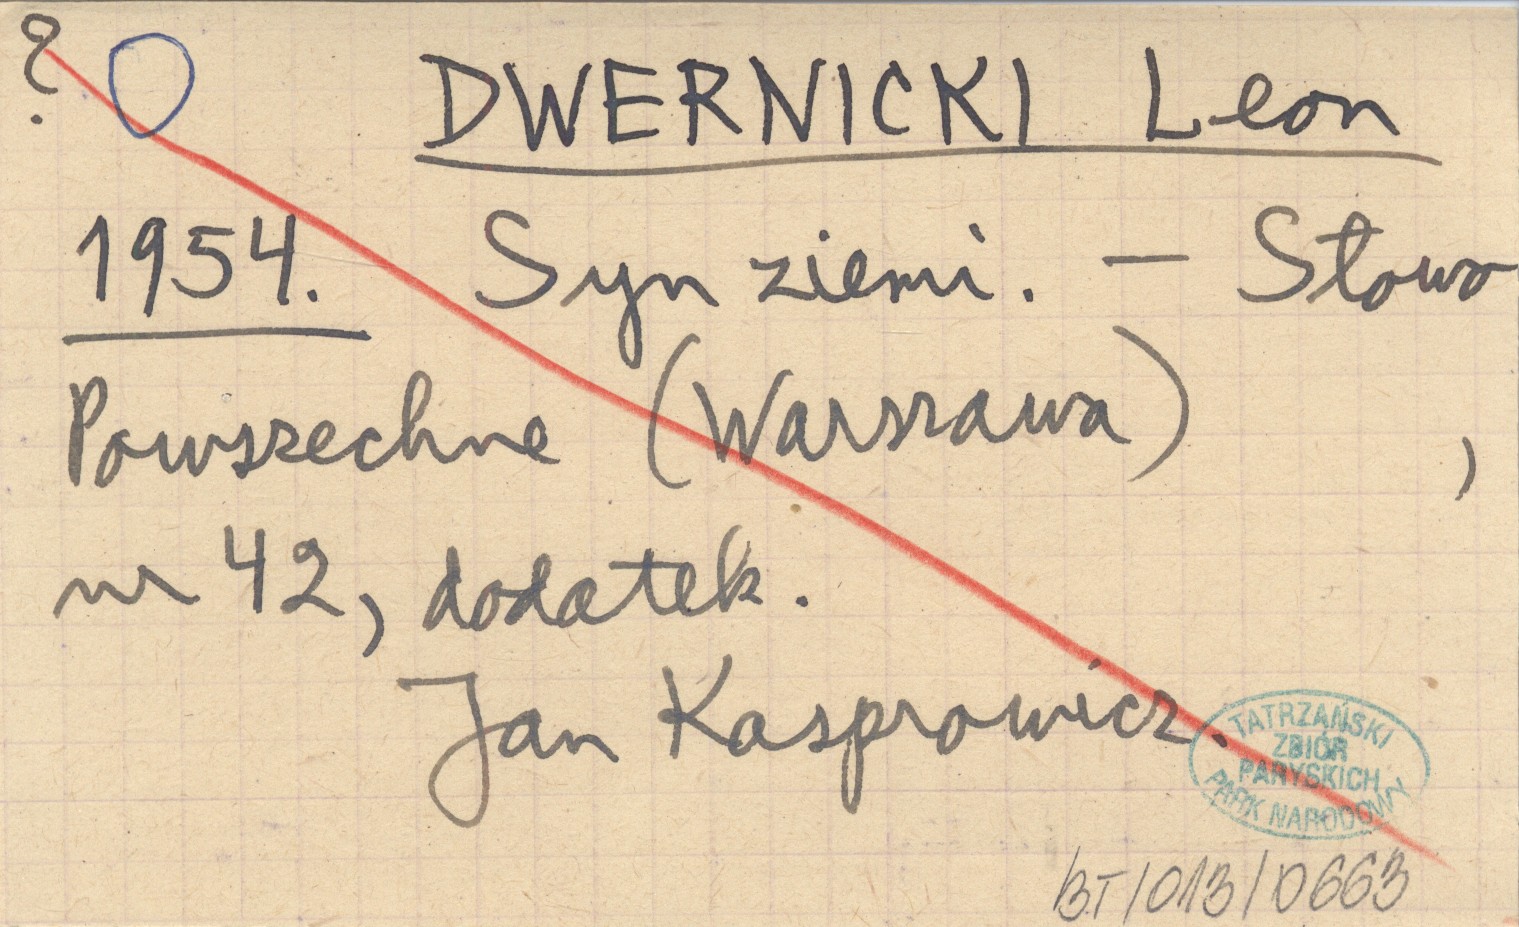 ?
DWERNICKI Leon
1954. Syn ziemi. – Słowo
Powszechne (Warszawa) ,
nr 42, dodatek.
Jan Kasprowicz.
TATRZAŃSKI
ZBIÓR
PARYSKICH
PARK NARODOWY
BT/013/0663